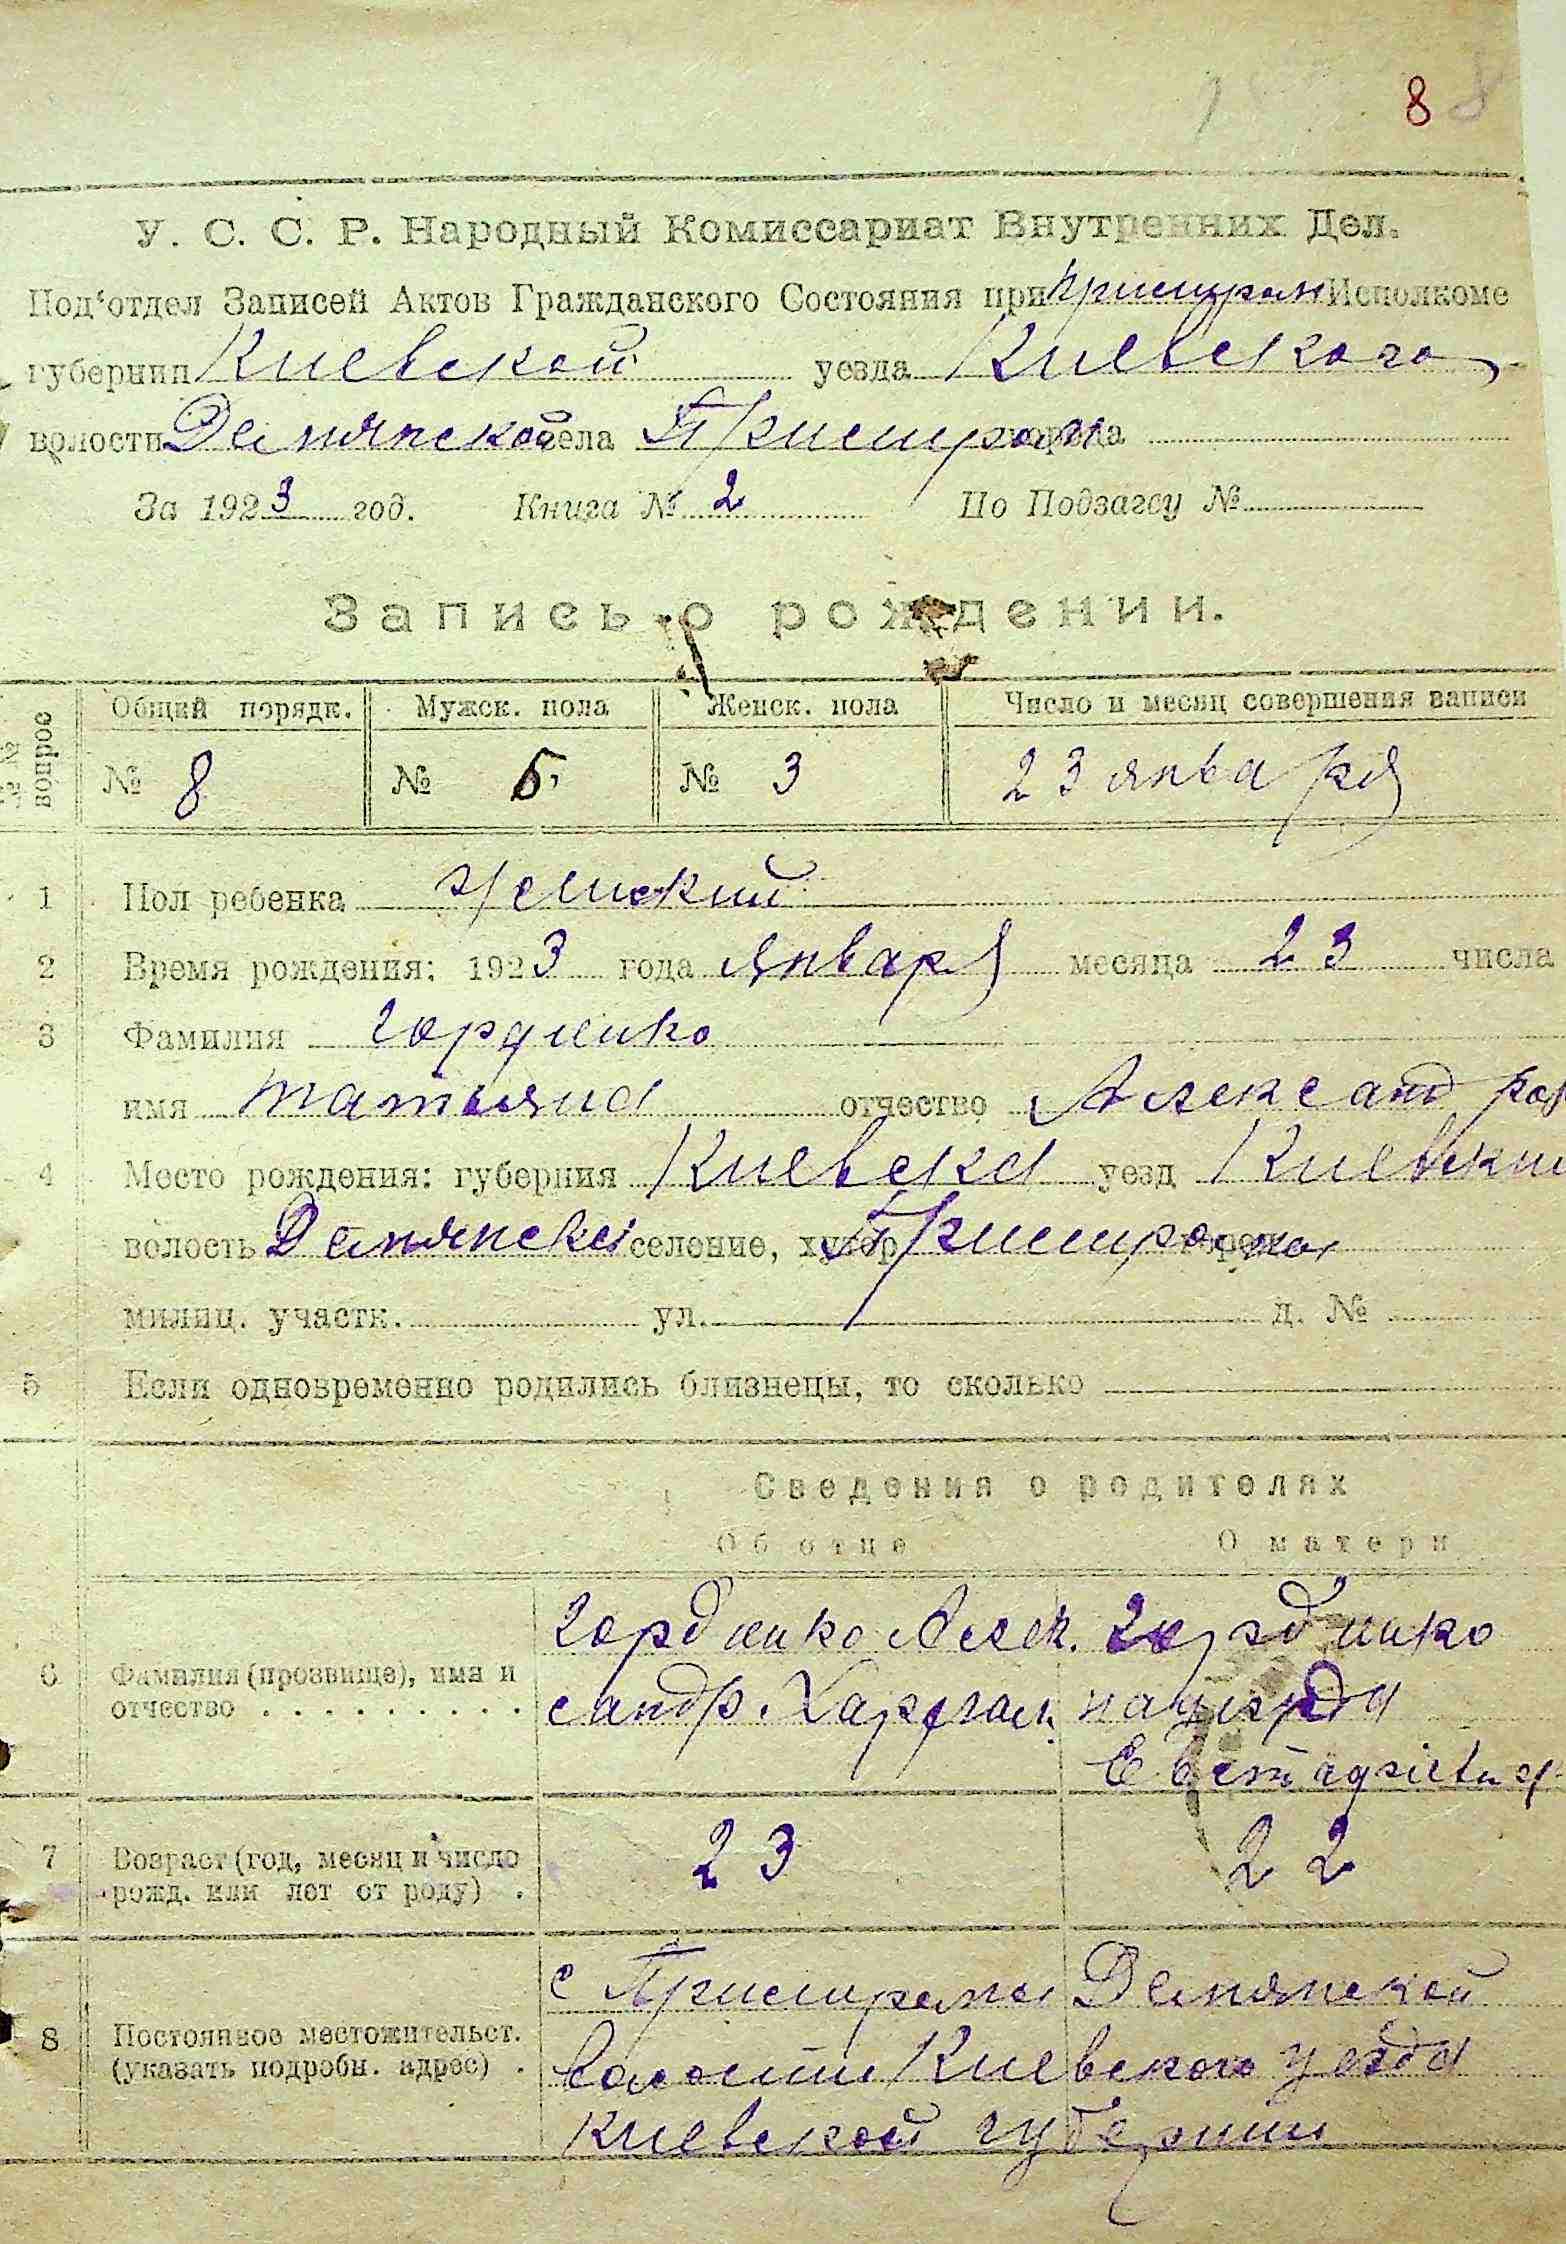 8
У. С. С. Р. Народный Комиссариат Внутренних Дел.
Под'отдел Записей Актов Гражданского Состояния при Исполкоме
губернии Киевской уезда Киевского
волости села города
За 1923 год. Книга № 2 По Подзагсу №
Запись о рождении.
№№ вопрос
Общий порядк. Мужск. пола Женск. пола Число и месяц совершения записи
№ 8 № 5 № 3 23 января
1 Пол ребенка женский
2 Время рождения: 1923 года января месяца 23 числа
3 Фамилия Гордиенко
имя татьяна отчество Александров
4 Место рождения: губерния Киевска уезд Киевский
волость селение, хутор город
милиц. участк. ул. д. №
5 Если одновременно родились близнецы, то сколько
Сведения о родителях
Об отце О матери
6 Фамилия (прозвище), имя и отчество
Гордиенко Алек. Гордиенко
сандр.
7 Возраст (год, месяц и число рожд. или лет от роду) .
23 22
8 Постоянное местожительст. (указать подробн. адрес) .
с
волости Киевского уезда
Киевской губернии